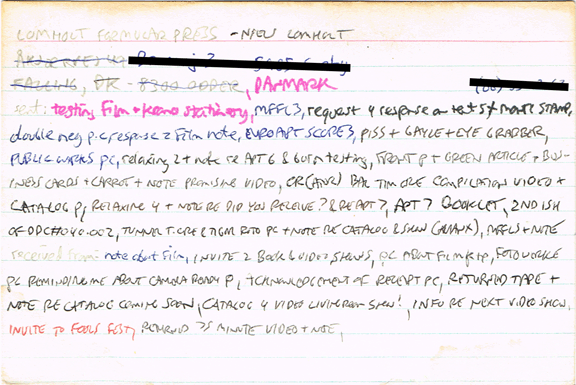 LOMHOLT FORMULAR PRESS - NIELS LOMHOLT
FALLING, DK - 8300 ODDER, DANMARK
sent: testing Film + Keno stationery, MFFL3, request 4 response on test 5 / MONTI STAMP,
double neg p.c. response 2 Film note, EUROART SCORE3, PISS + GAYLE + EYE GRABBER,
PUBLIC WORKS PC, relaxing 2 + note re APT 6 & 60rm testing, FRONT P + GREEN ARTICLE + BUS-
INESS CARDS + CARROT + NOTE PROMISING VIDEO, OR(ANR) BALTIMORE COMPILATION VIDEO +
CATALOG P, RELAXING 4 + NOTE RE DID YOU RECEIVE? & RE APT 7, APT 7 BOOKLET, 2ND ISH
OF DDCH#040.002, TUNNEL T.ORE & TGM RTO PC + NOTE RE CATALOG & SHOW, MFFL5 + NOTE
received from: note about Film, INVITE 2 BOOK & VIDEO SHOWS, PC ABOUT FILM, FOTOWORKE
PC REMINDING ME ABOUT CAMERA READY P, ACKNOWLEDGEMENT OF RECEIPT PC, RETURNED TAPE +
NOTE RE CATALOG COMING SOON, CATALOG 4 VIDEO LIVINGROOM SHOW!, INFO RE NEXT VIDEO SHOW,
INVITE TO FOOLS FEST, RETURNED 75 MINUTE VIDEO + NOTE,